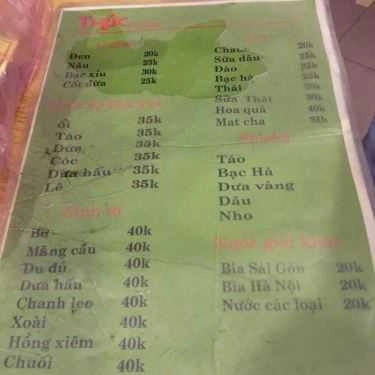 Đen 20k
Nâu 25k
Bạc xỉu 30k
Cốt dừa 25k
Ổi 35k
Táo 35k
Dứa 35k
Cóc 35k
Dưa hấu 35k
Lê 35k
Sinh tố
Bơ 40k
Mãng cầu 40k
Đu đủ 40k
Dưa hấu 40k
Chanh leo 40k
Xoài 40k
Hồng xiêm 40k
Chuối 40k
20k
Sữa dâu 25k
Đào 25k
Bạc hà 25k
Thái 30k
Sữa Thái 30k
Hoa quả 40k
Mat cha
Táo
Bạc Hà
Dưa vàng
Dâu
Nho
Nước giải khát
Bia Sài Gòn 20k
Bia Hà Nội 20k
Nước các loại 20k